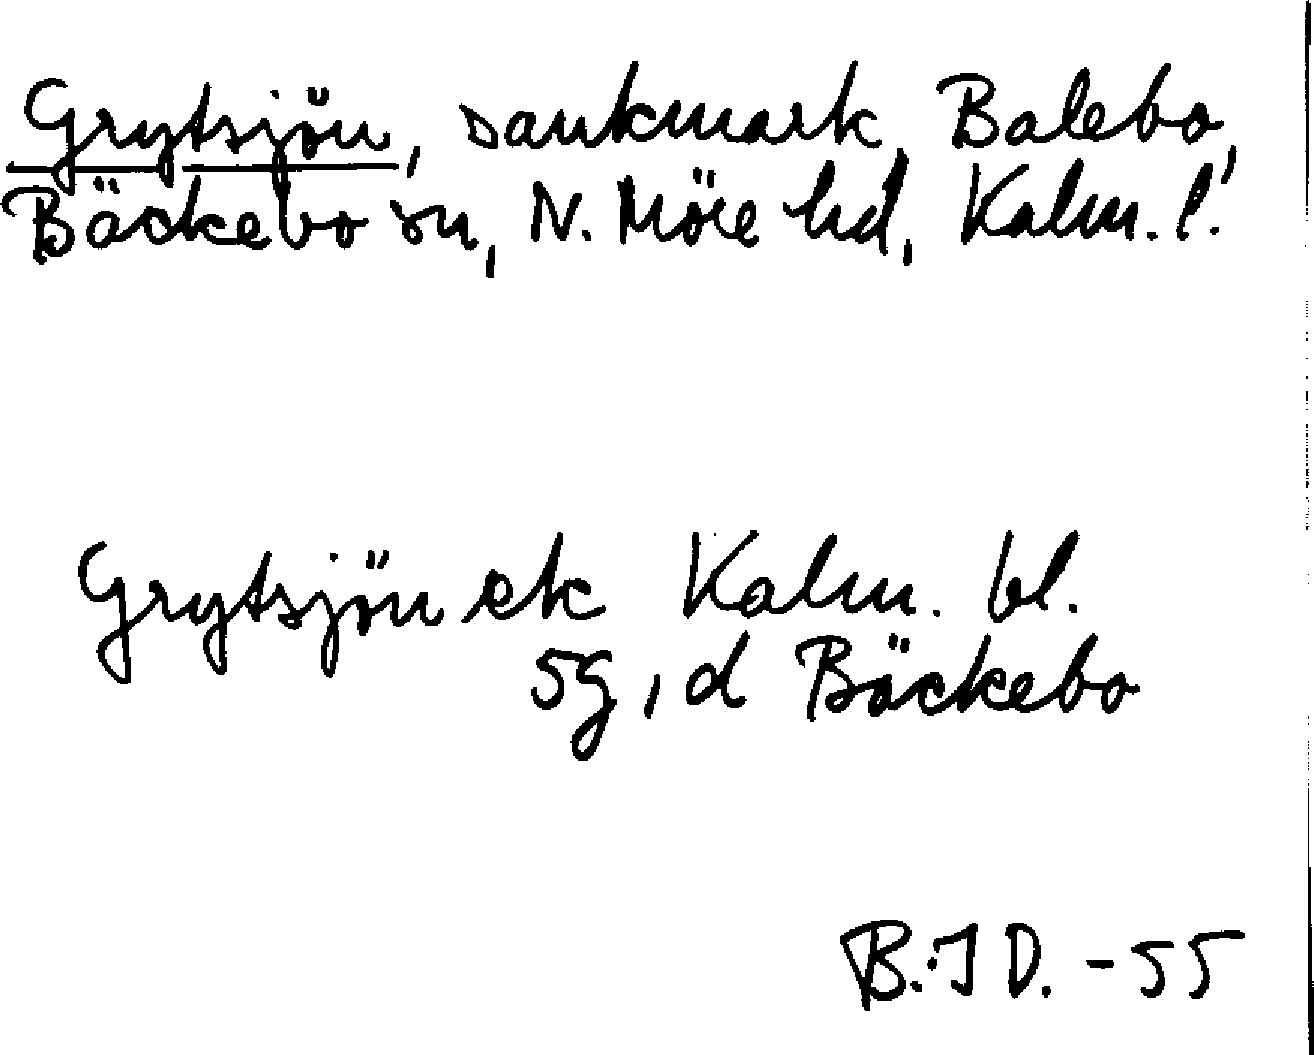 Grytsjön, sankmark, Balebo,
Bäckebo sn, N. Möre hd, Kalm. l.
Grytsjön ek Kalm. bl.
5g, d Bäckebo
B. J D. - 55